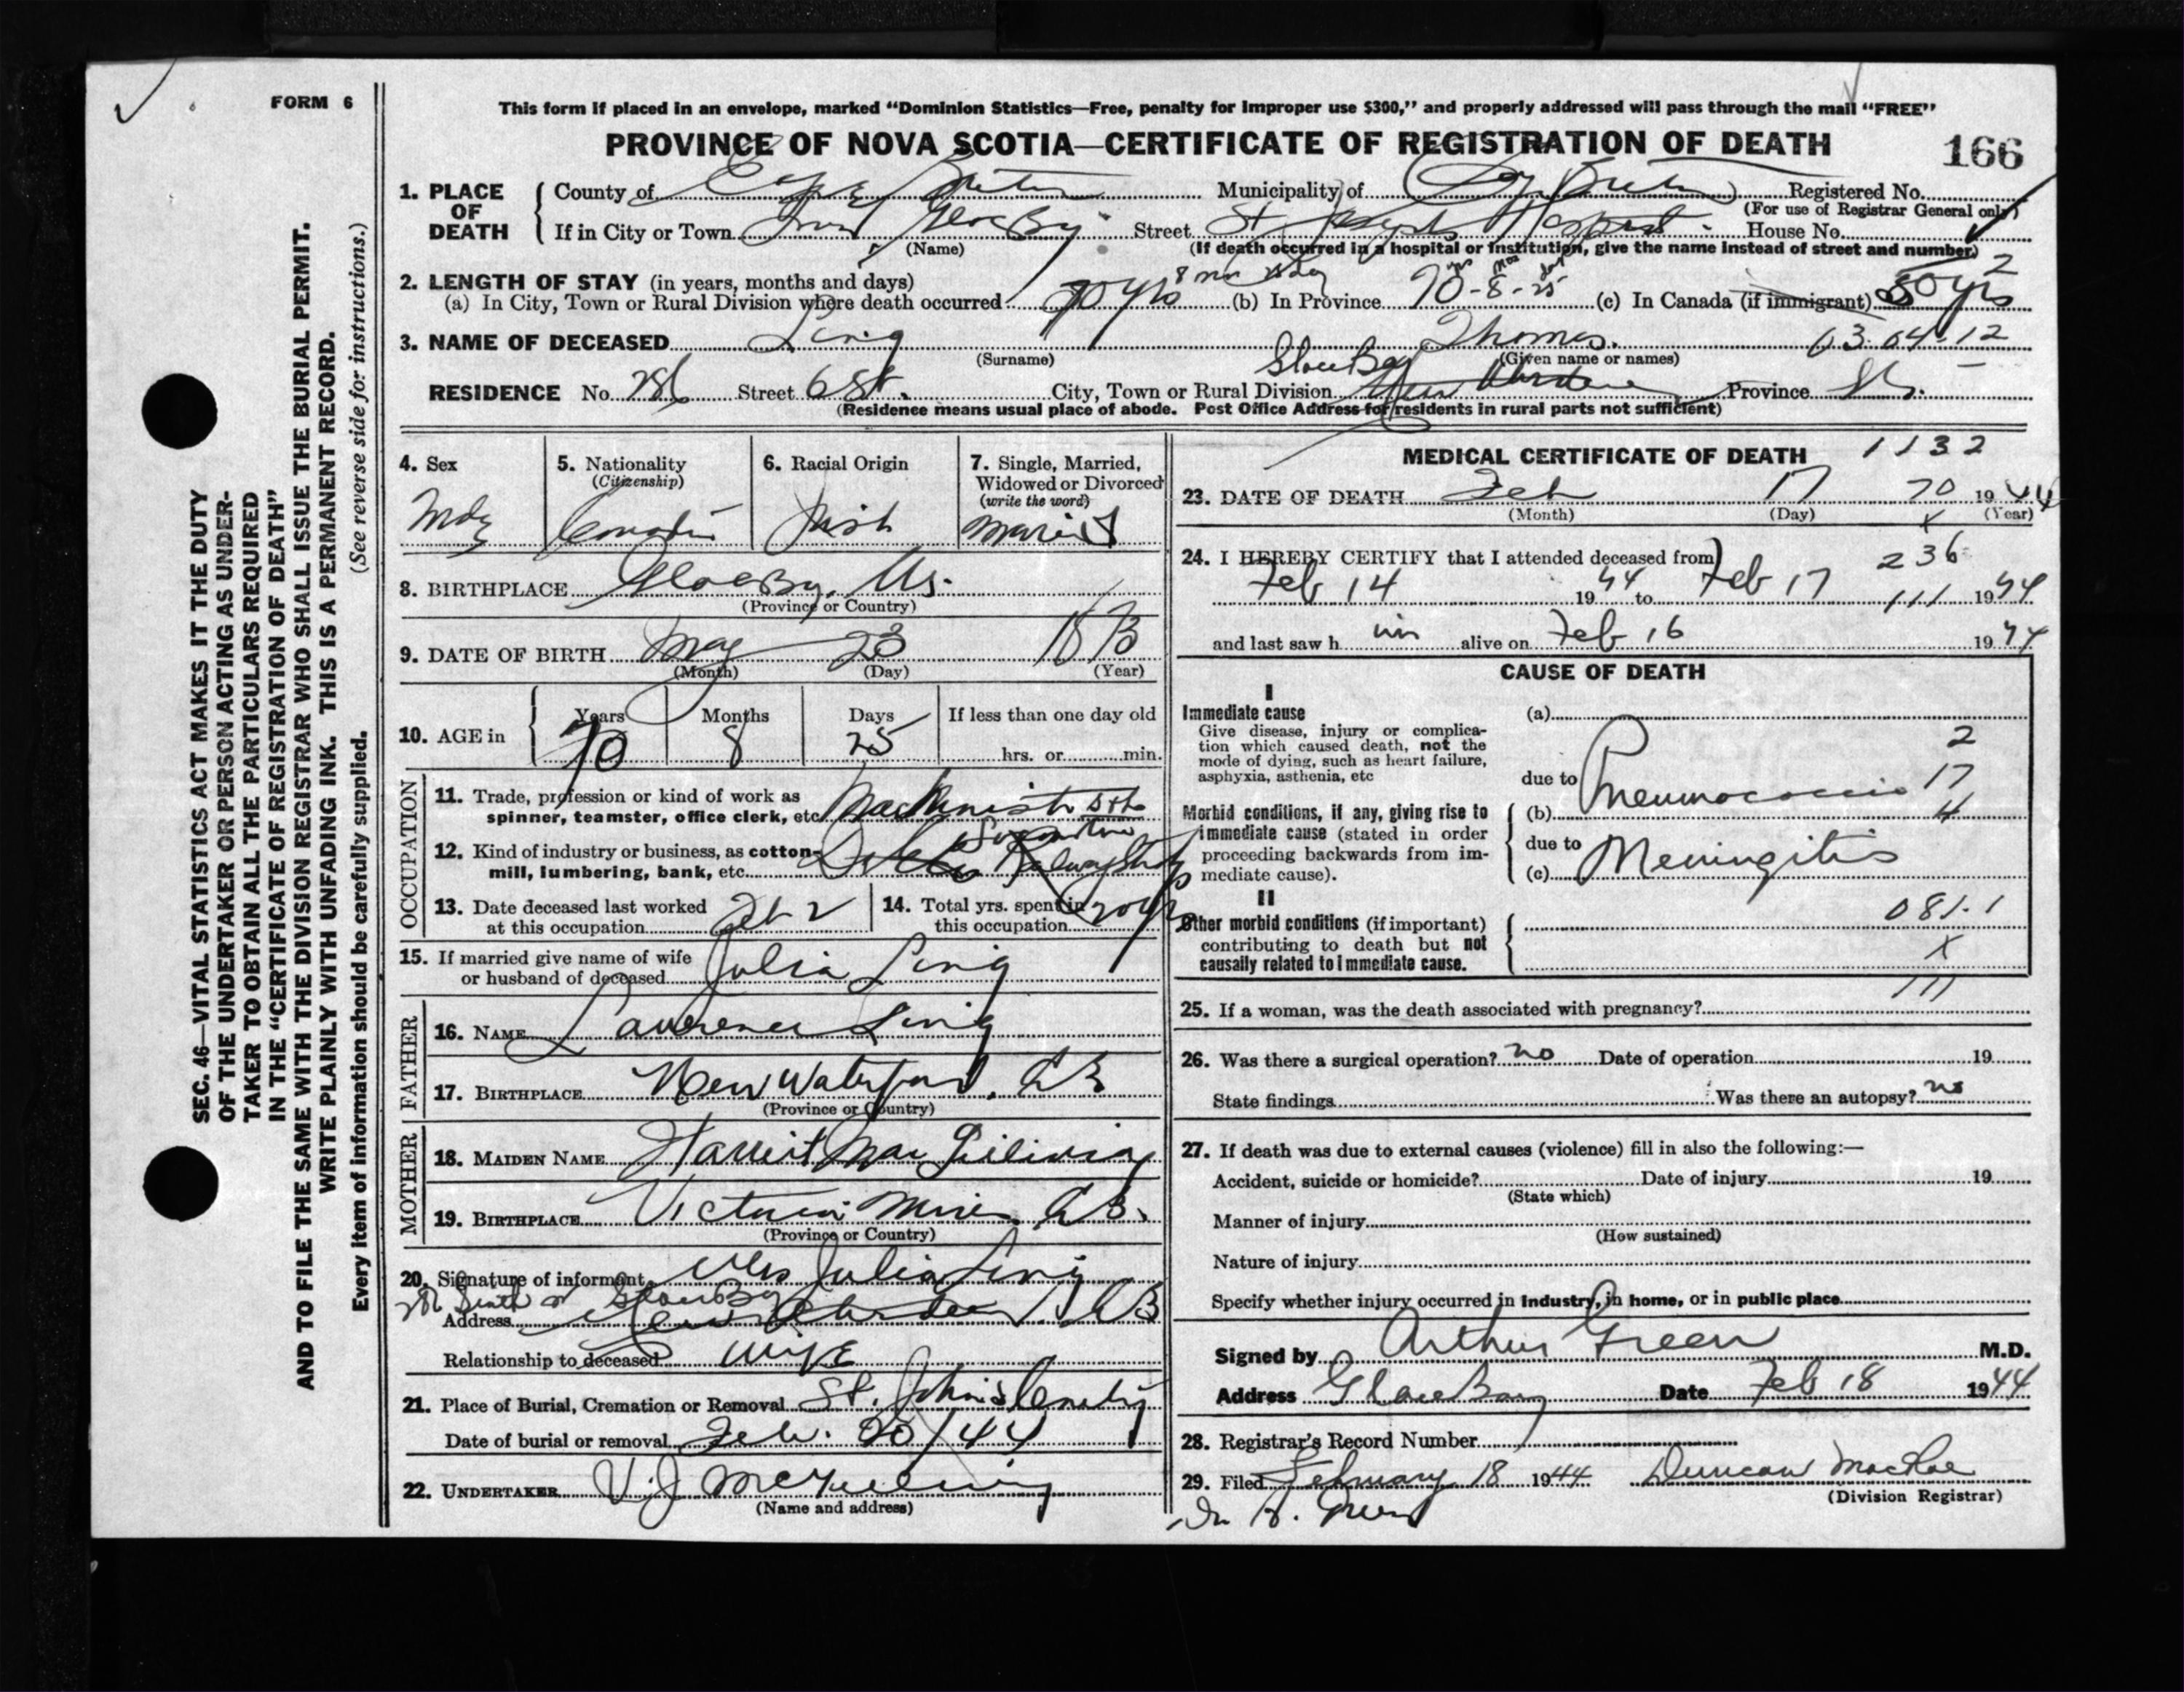 FORM 6
This form if placed in an envelope, marked “Dominion Statistics—Free, penalty for improper use $300,” and properly addressed will pass through the mail “FREE”
PROVINCE OF NOVA SCOTIA—CERTIFICATE OF REGISTRATION OF DEATH
166
1. PLACE OF DEATH County of Cape Breton Municipality of Cape Breton Registered No.
(For use of Registrar General only)
If in City or Town Town Glace Bay Street St Joseph's Hospital House No.
(Name) (If death occurred in a hospital or institution, give the name instead of street and number)
2. LENGTH OF STAY (in years, months and days) 2
(a) In City, Town or Rural Division where death occurred 70 yrs 8 mos (b) In Province 70-8-25 yrs mos days (c) In Canada (if immigrant)
3. NAME OF DECEASED Ling Thomas. 63.04.12
(Surname) (Given name or names)
Glace Bay
RESIDENCE No. 286 Street 6 St. City, Town or Rural Division New Aberdeen Province
(Residence means usual place of abode. Post Office Address for residents in rural parts not sufficient)
4. Sex
Male
5. Nationality
(Citizenship)
Canadian
6. Racial Origin
Irish
7. Single, Married,
Widowed or Divorced
(write the word)
Married
8. BIRTHPLACE Glace Bay, Ns.
(Province or Country)
9. DATE OF BIRTH May 23
(Month) (Day) (Year)
10. AGE in Years 70 Months 8 Days 25 If less than one day old
hrs. or min.
OCCUPATION
11. Trade, profession or kind of work as
spinner, teamster, office clerk, etc. Machinist
12. Kind of industry or business, as cotton-
mill, lumbering, bank, etc. Railway
13. Date deceased last worked
at this occupation Feb 2
14. Total yrs. spent in
this occupation 20 yrs
15. If married give name of wife
or husband of deceased Julia Ling
FATHER
16. NAME Lawrence Ling
17. BIRTHPLACE New Waterford, CB
(Province or Country)
MOTHER
18. MAIDEN NAME Harriet Mac
19. BIRTHPLACE Victoria Mines CB.
(Province or Country)
20. Signature of informant Mrs Julia Ling
286 Sixth St Glace Bay
Address New Aberdeen CB
Relationship to deceased wife
21. Place of Burial, Cremation or Removal St. John's Cemetery
Date of burial or removal Feb. 20/44
22. UNDERTAKER V.J.
(Name and address)
MEDICAL CERTIFICATE OF DEATH 1132
23. DATE OF DEATH Feb 17 70 1944
(Month) (Day) (Year)
x
24. I HEREBY CERTIFY that I attended deceased from 236
Feb 14 1944 to Feb 17 111 1944
and last saw h im alive on Feb 16 1944
CAUSE OF DEATH
I
Immediate cause
Give disease, injury or complica-
tion which caused death, not the
mode of dying, such as heart failure,
asphyxia, asthenia, etc
(a)
2
due to Pneumococcic 17
Morbid conditions, if any, giving rise to
immediate cause (stated in order
proceeding backwards from im-
mediate cause).
(b) 4
due to
(c) Meningitis
II
Other morbid conditions (if important)
contributing to death but not
causally related to immediate cause.
081.1
x
111
25. If a woman, was the death associated with pregnancy?
26. Was there a surgical operation? no Date of operation 19
State findings Was there an autopsy? no
27. If death was due to external causes (violence) fill in also the following:—
Accident, suicide or homicide? Date of injury 19
(State which)
Manner of injury
(How sustained)
Nature of injury
Specify whether injury occurred in industry, in home, or in public place
Signed by Arthur Green M.D.
Address Glace Bay Date Feb 18 1944
28. Registrar's Record Number
29. Filed February 18 1944 Duncan MacRae
(Division Registrar)
Dr A. Green
SEC. 46—VITAL STATISTICS ACT MAKES IT THE DUTY
OF THE UNDERTAKER OR PERSON ACTING AS UNDER-
TAKER TO OBTAIN ALL THE PARTICULARS REQUIRED
IN THE “CERTIFICATE OF REGISTRATION OF DEATH”
AND TO FILE THE SAME WITH THE DIVISION REGISTRAR WHO SHALL ISSUE THE BURIAL PERMIT.
WRITE PLAINLY WITH UNFADING INK. THIS IS A PERMANENT RECORD.
Every item of information should be carefully supplied. (See reverse side for instructions.)